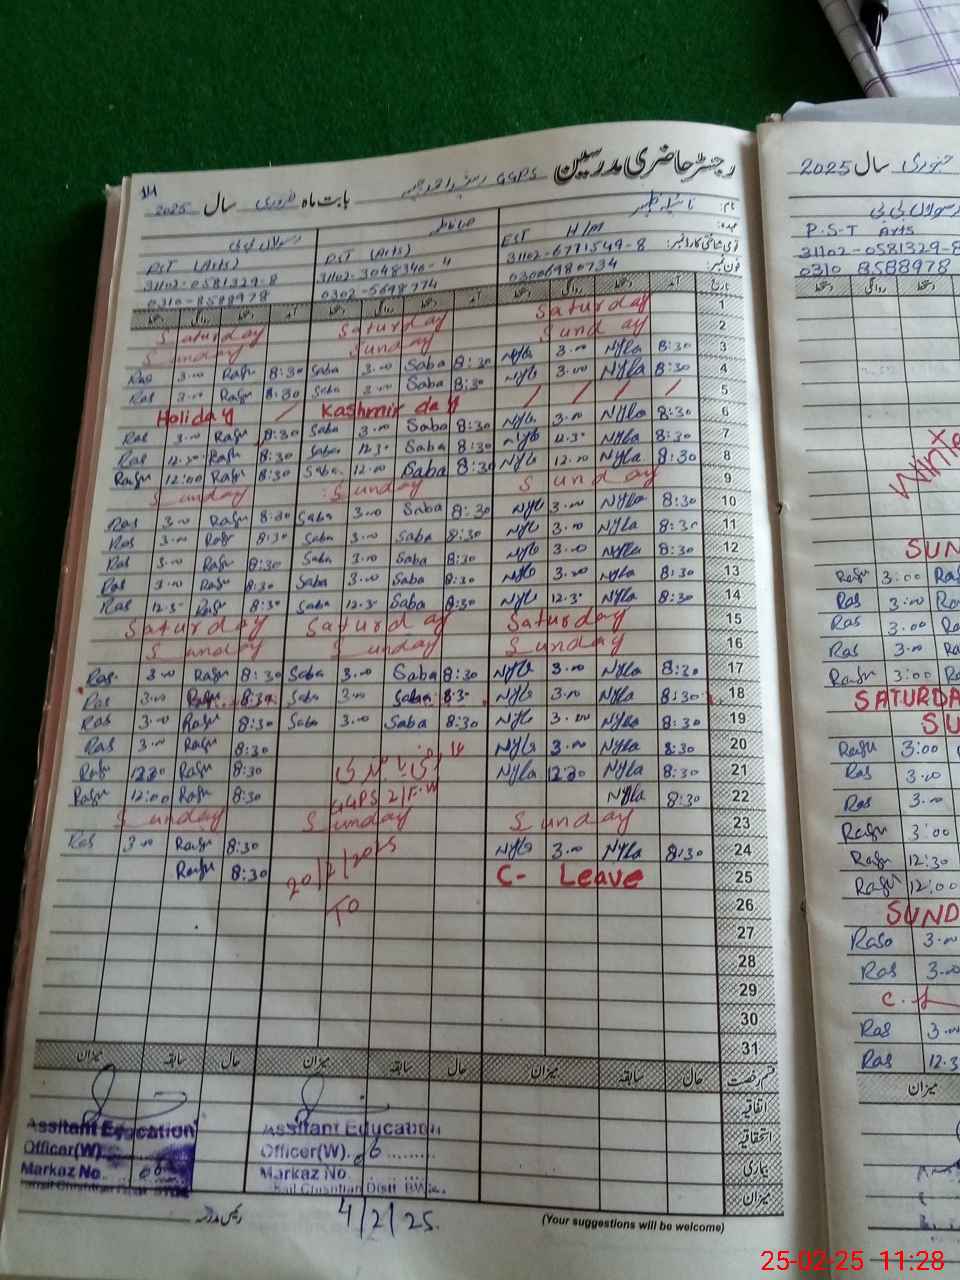 رجسٹر حاضری مدرسین GGPS بابت ماہ فروری سال 2025
نام:
عہدہ: EST H/M PST (Arts) PST (Arts)
قومی شناختی کارڈ نمبر: 31102-6771549-8 31102-3048340-4 31102-0581329-8
فون نمبر: 03006980734 0302-5698774 0310-8588978
تاریخ آمد دستخط روانگی دستخط آمد دستخط روانگی دستخط آمد دستخط روانگی دستخط
Saturday Saturday Saturday 1
Sunday Sunday Sunday 2
Ras 3.00 Rasu 8:30 Saba 3.00 Saba 8:30 Nyla 3.00 Nyla 8:30 3
Ras 3.00 Rasu 8:30 Saba 3.00 Saba 8:30 Nyla 3.00 Nyla 8:30 4
Holiday / Kashmir day / / / / 5
Ras 3.00 Rasu 8:30 Saba 3.00 Saba 8:30 Nyla 3.00 Nyla 8:30 6
Ras 12.30 Rasu 8:30 Saba 12.30 Saba 8:30 Nyla 12.30 Nyla 8:30 7
Rasu 12:00 Rasu 8:30 Saba 12.00 Saba 8:30 Nyla 12.00 Nyla 8:30 8
Sunday Sunday Sunday 9
Ras 3.00 Rasu 8:30 Saba 3.00 Saba 8:30 Nyla 3.00 Nyla 8:30 10
Ras 3.00 Rasu 8:30 Saba 3.00 Saba 8:30 Nyla 3.00 Nyla 8:30 11
Ras 3.00 Rasu 8:30 Saba 3.00 Saba 8:30 Nyla 3.00 Nyla 8:30 12
Ras 3.00 Rasu 8:30 Saba 3.00 Saba 8:30 Nyla 3.00 Nyla 8:30 13
Ras 12.30 Rasu 8:30 Saba 12.30 Saba 8:30 Nyla 12.30 Nyla 8:30 14
Saturday Saturday Saturday 15
Sunday Sunday Sunday 16
Ras 3.00 Rasu 8:30 Saba 3.00 Saba 8:30 Nyla 3.00 Nyla 8:30 17
Ras 3.00 Rasu 8:30 Saba 3.00 Saba 8:30 Nyla 3.00 Nyla 8:30 18
Ras 3.00 Rasu 8:30 Saba 3.00 Saba 8:30 Nyla 3.00 Nyla 8:30 19
Ras 3.00 Rasu 8:30 Nyla 3.00 Nyla 8:30 20
Rasu 12:30 Rasu 8:30 Nyla 12:30 Nyla 8:30 21
Rasu 12:00 Rasu 8:30 GGPS 21/F.W Nyla 8:30 22
Sunday Sunday Sunday 23
Ras 3.00 Rasu 8:30 20/2/2025 Nyla 3.00 Nyla 8:30 24
Rasu 8:30 C- Leave 25
To 26
27
28
29
30
31
قسم رخصت حال سابقہ میزان حال سابقہ میزان حال سابقہ میزان
اتفاقیہ
استحقاقیہ
بیماری
میزان
Assitant Education
Officer(W)
Markaz No.
Assitant Education
Officer(W). 6
Markaz No
4/2/25
رئیس مدرسہ
(Your suggestions will be welcome)
جنوری سال 2025
P.S.T Arts
31102-0581329-8
0310 8588978
دستخط روانگی دستخط
SUN
Rasu 3:00
Ras 3:00
Ras 3.00
Ras 3.00
Rasu 3:00
SATURDA
SU
Rasu 3:00
Ras 3.00
Ras 3.00
Rasu 3:00
Rasu 12:30
Rasu 12:00
SUND
Raso 3.00
Ras 3.00
C. L
Ras 3.00
Ras 12.3
میزان
25-02-25 11:28